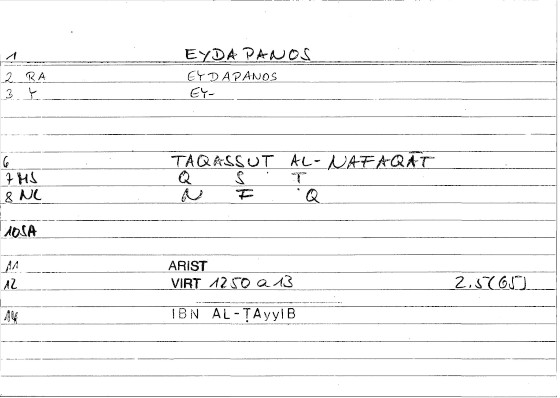 1 EYDAPANOS
2 RA EYDAPANOS
3 Y EY-
6 TAQASSUT AL-NAFAQĀT
7 HS Q S T
8 NL N F Q
10 SA
11 ARIST
12 VIRT 1250 a 13 2.5(65)
14 IBN AL-ṬAyyIB